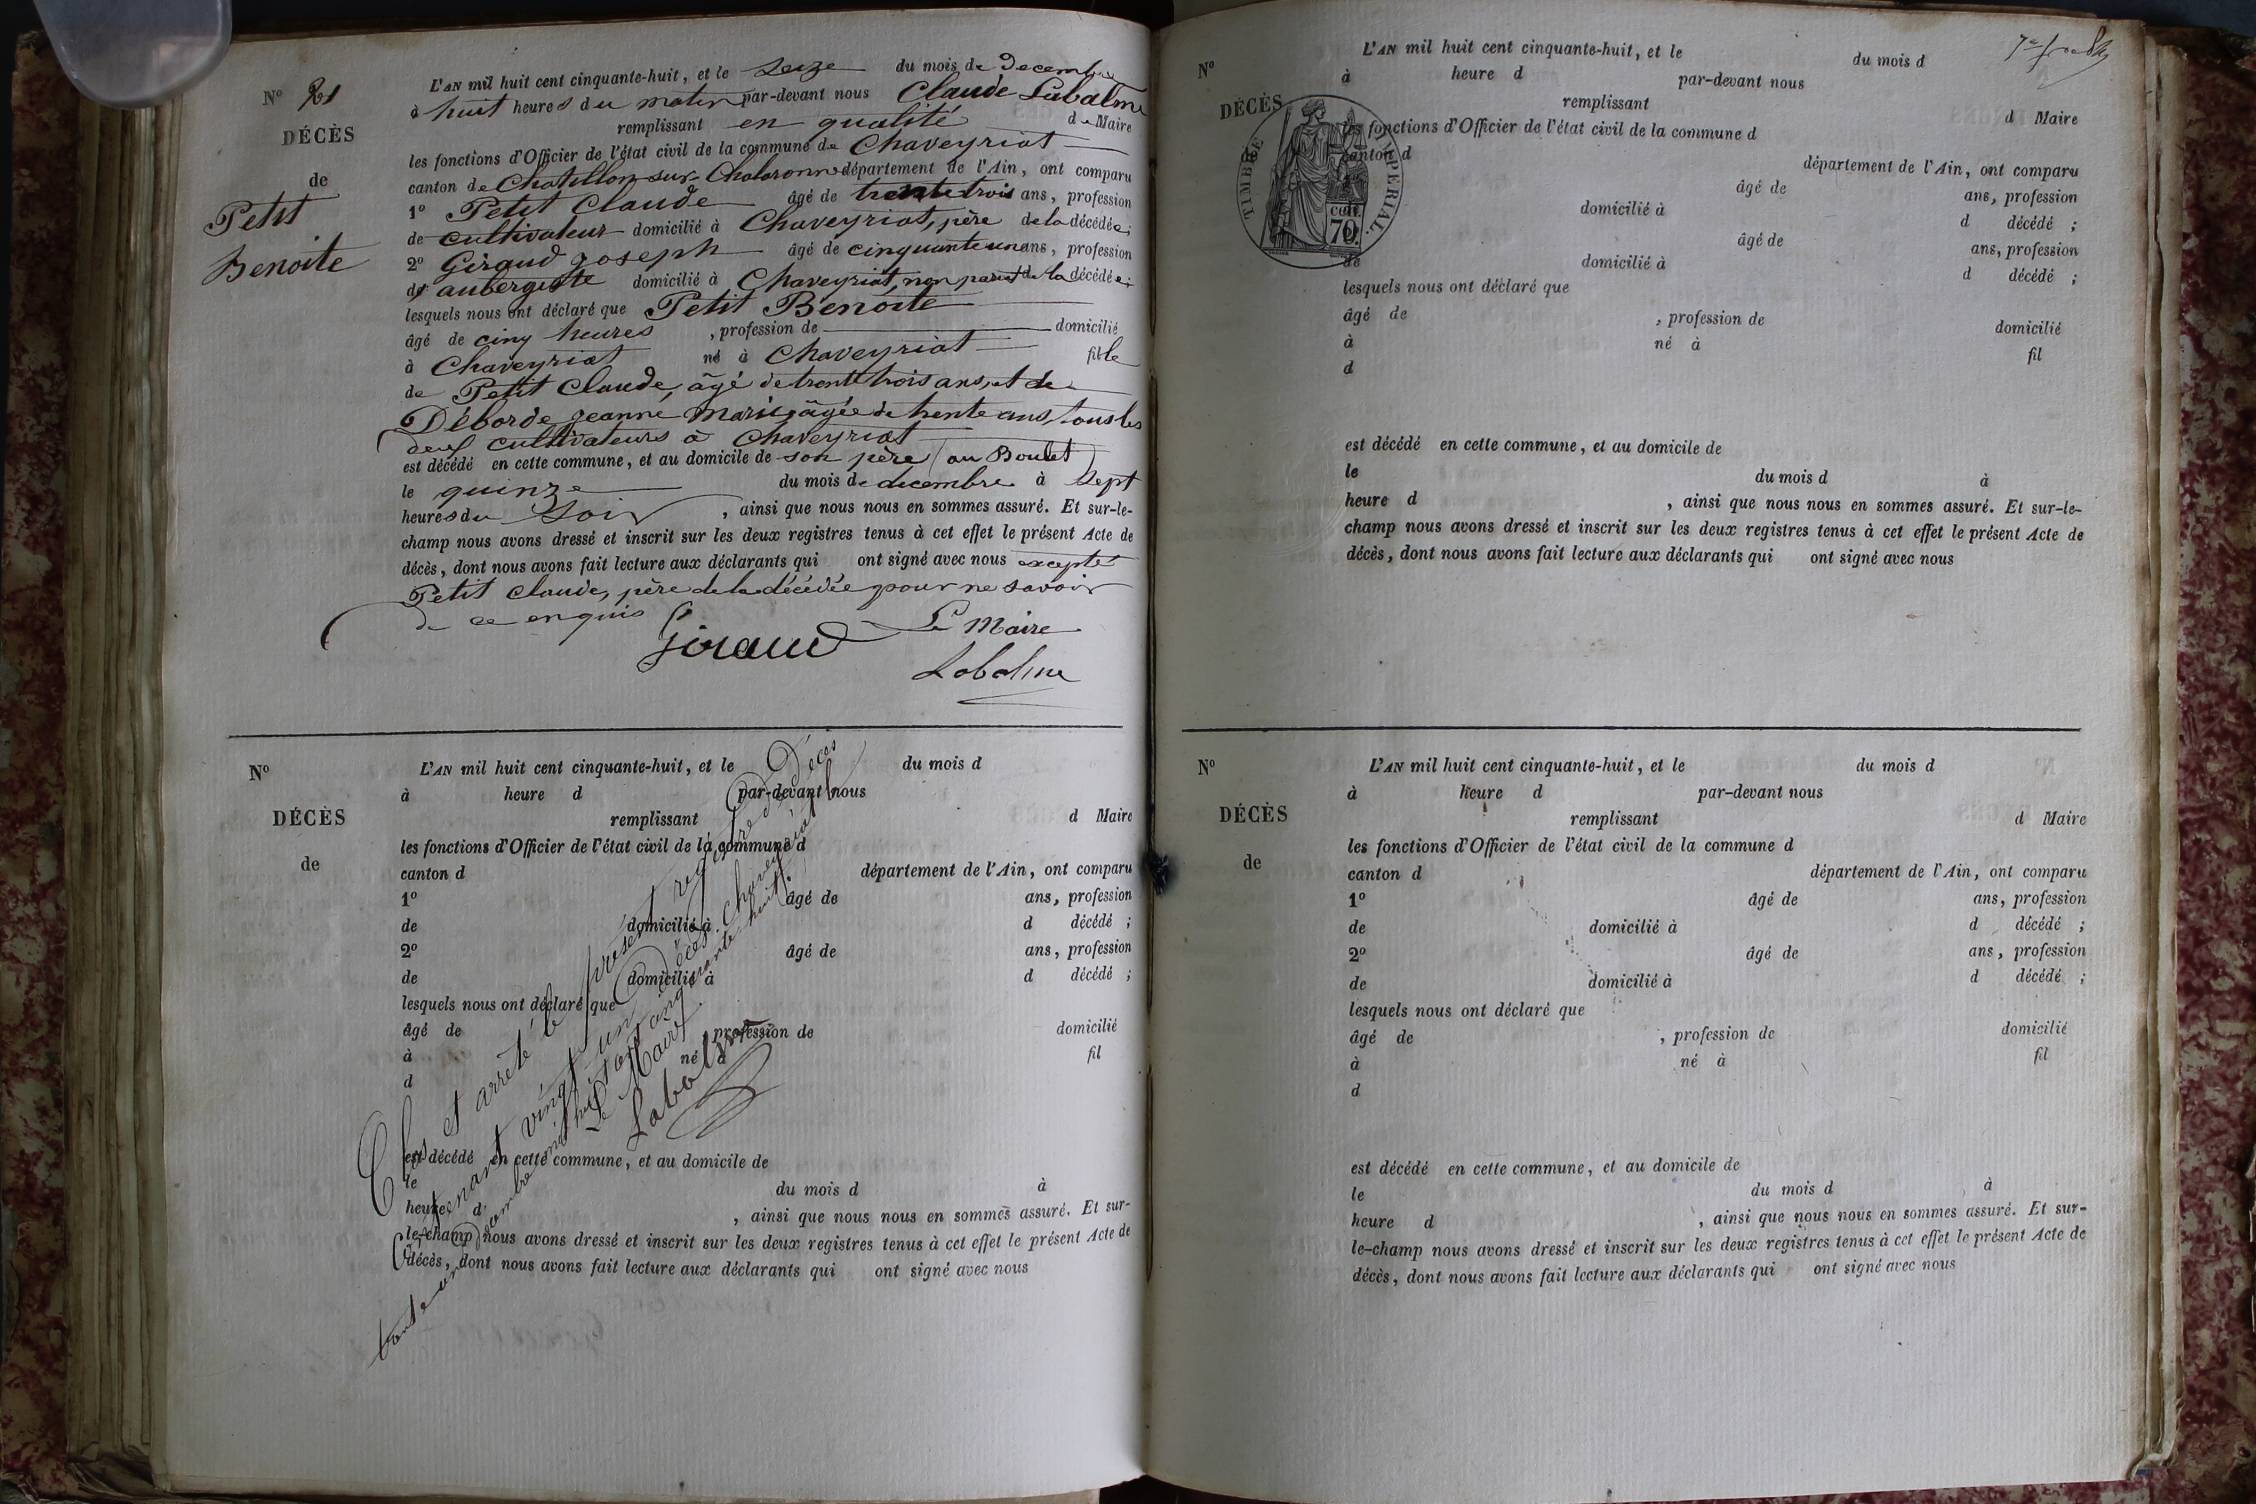 N° 21
DÉCÈS
de
Petit
Benoite
L'AN mil huit cent cinquante-huit, et le seize du mois de Decembre
à huit heures du matin par-devant nous Claude Labalme
remplissant en qualité de Maire
les fonctions d'Officier de l'état civil de la commune de Chaveyriat
canton de Chatillon sur Chalaronne département de l'Ain, ont comparu
1° Petit Claude âgé de trente trois ans, profession
de cultivateur domicilié à Chaveyriat, père de la décédée;
2° Giraud Joseph âgé de cinquante un ans, profession
d' aubergiste domicilié à Chaveyriat, non parent de la décédée;
lesquels nous ont déclaré que Petit Benoite
âgé de cinq heures , profession de domicilié
à Chaveyriat né à Chaveyriat fille
de Petit Claude, âgé de trente trois ans, et de
Déborde Jeanne Marie, âgée de trente ans, tous les
deux cultivateurs à Chaveyriat
est décédé en cette commune, et au domicile de son père (au Boulet)
le quinze du mois de decembre à sept
heures du soir , ainsi que nous nous en sommes assuré. Et sur-le-
champ nous avons dressé et inscrit sur les deux registres tenus à cet effet le présent Acte de
décès, dont nous avons fait lecture aux déclarants qui ont signé avec nous excepté
Petit Claude, père de la décédée pour ne savoir
de ce enquis
Giraud Le Maire
Labalme
N°
DÉCÈS
de
L'AN mil huit cent cinquante-huit, et le du mois d
à heure d par-devant nous
remplissant d Maire
les fonctions d'Officier de l'état civil de la commune d
canton d département de l'Ain, ont comparu
1° âgé de ans, profession
de domicilié à d décédé ;
2° âgé de ans, profession
de domicilié à d décédé ;
lesquels nous ont déclaré que
âgé de profession de domicilié
à né à fil
d
est décédé en cette commune, et au domicile de
le du mois d à
heure d , ainsi que nous nous en sommes assuré. Et sur-
le-champ nous avons dressé et inscrit sur les deux registres tenus à cet effet le présent Acte de
décès, dont nous avons fait lecture aux déclarants qui ont signé avec nous
Clos et arrêté le présent registre de Décès
Contenant vingt un Décès. Chaveyriat le
trente un Décembre mil huit cent cinquante huit.
Le Maire
Labalme
N°
DÉCÈS
L'AN mil huit cent cinquante-huit, et le du mois d
à heure d par-devant nous
remplissant d Maire
les fonctions d'Officier de l'état civil de la commune d
canton d département de l'Ain, ont comparu
âgé de ans, profession
domicilié à d décédé ;
âgé de ans, profession
de domicilié à d décédé ;
lesquels nous ont déclaré que
âgé de , profession de domicilié
à né à fil
d
est décédé en cette commune, et au domicile de
le du mois d à
heure d , ainsi que nous nous en sommes assuré. Et sur-le-
champ nous avons dressé et inscrit sur les deux registres tenus à cet effet le présent Acte de
décès, dont nous avons fait lecture aux déclarants qui ont signé avec nous
TIMBRE IMPERIAL.
70
N°
DÉCÈS
de
L'AN mil huit cent cinquante-huit, et le du mois d
à heure d par-devant nous
remplissant d Maire
les fonctions d'Officier de l'état civil de la commune d
canton d département de l'Ain, ont comparu
1° âgé de ans, profession
de domicilié à d décédé ;
2° âgé de ans, profession
de domicilié à d décédé ;
lesquels nous ont déclaré que
âgé de , profession de domicilié
à né à fil
d
est décédé en cette commune, et au domicile de
le du mois d à
heure d , ainsi que nous nous en sommes assuré. Et sur-
le-champ nous avons dressé et inscrit sur les deux registres tenus à cet effet le présent Acte de
décès, dont nous avons fait lecture aux déclarants qui ont signé avec nous